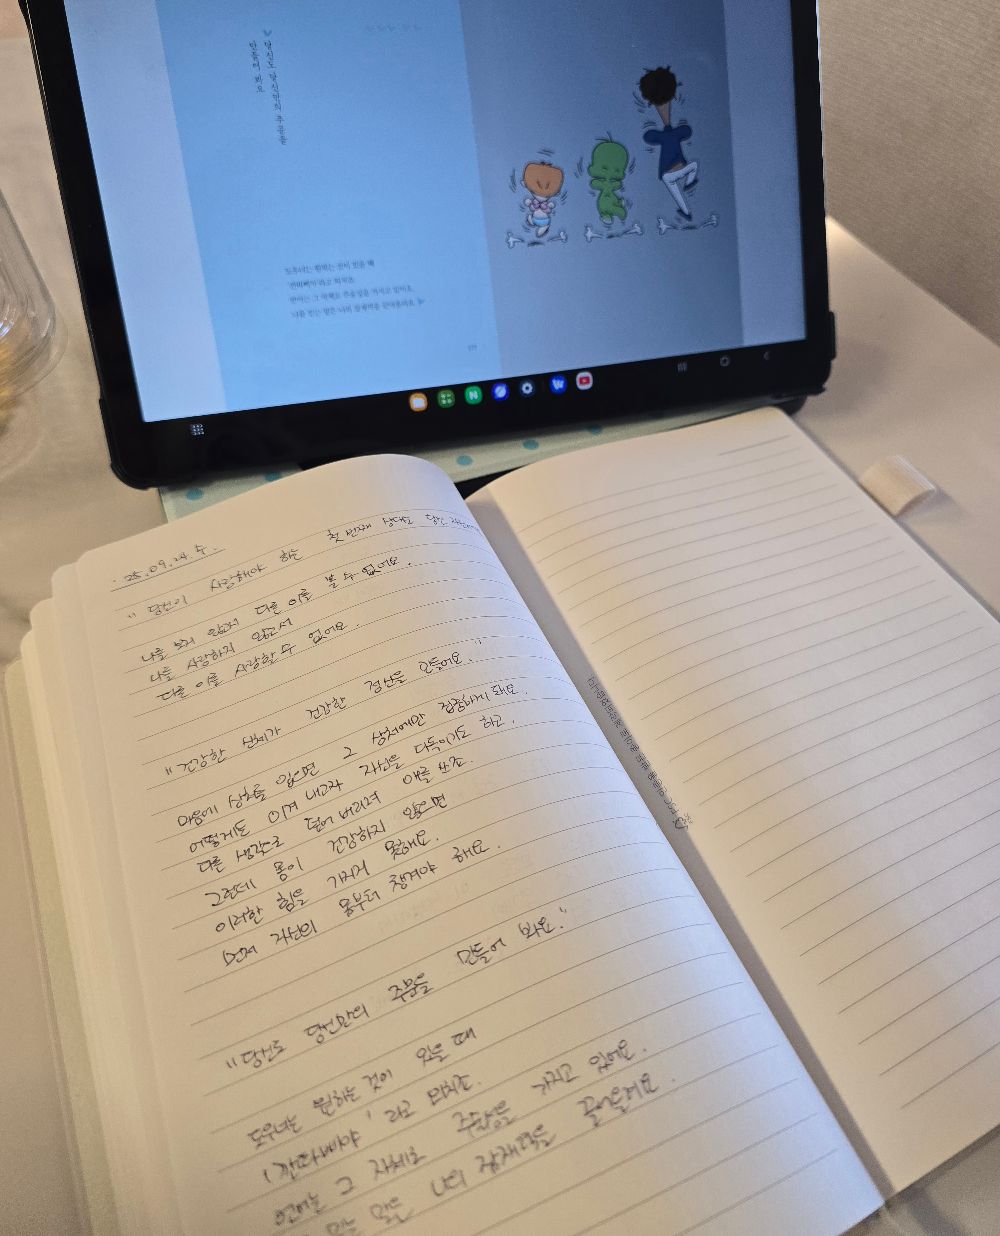 당신도 당신만의 주문을
만들어 봐요
도우너는 원하는 것이 있을 때
'깐따삐야'라고 외치죠.
언어는 그 자체로 주술성을 가지고 있어요.
25. 09. 24. 수.
"당신이 사랑해야 하는 첫 번째 상대는 당신
나를 보지 않고서 다른 이를 볼 수 없어요.
나를 사랑하지 않고서
다른 이를 사랑할 수 없어요.
"건강한 신체가 건강한 정신을 만들어요."
마음에 상처를 입으면 그 상처에만 집중하게 돼요.
어떻게든 이겨 내고자 자신을 다독이기도 하고,
다른 생각으로 덮어 버리려 애를 쓰죠.
그런데 몸이 건강하지 않으면
이러한 힘을 가지지 못해요.
먼저 자신의 몸부터 챙겨야 해요.
"당신도 당신만의 주문을 만들어 봐요."
도우너는 원하는 것이 있을 때
'깐따삐야' 라고 외치죠.
언어는 그 자체로 주술성을 가지고 있어요.
믿는 말은 나의 잠재력을 끌어올려요